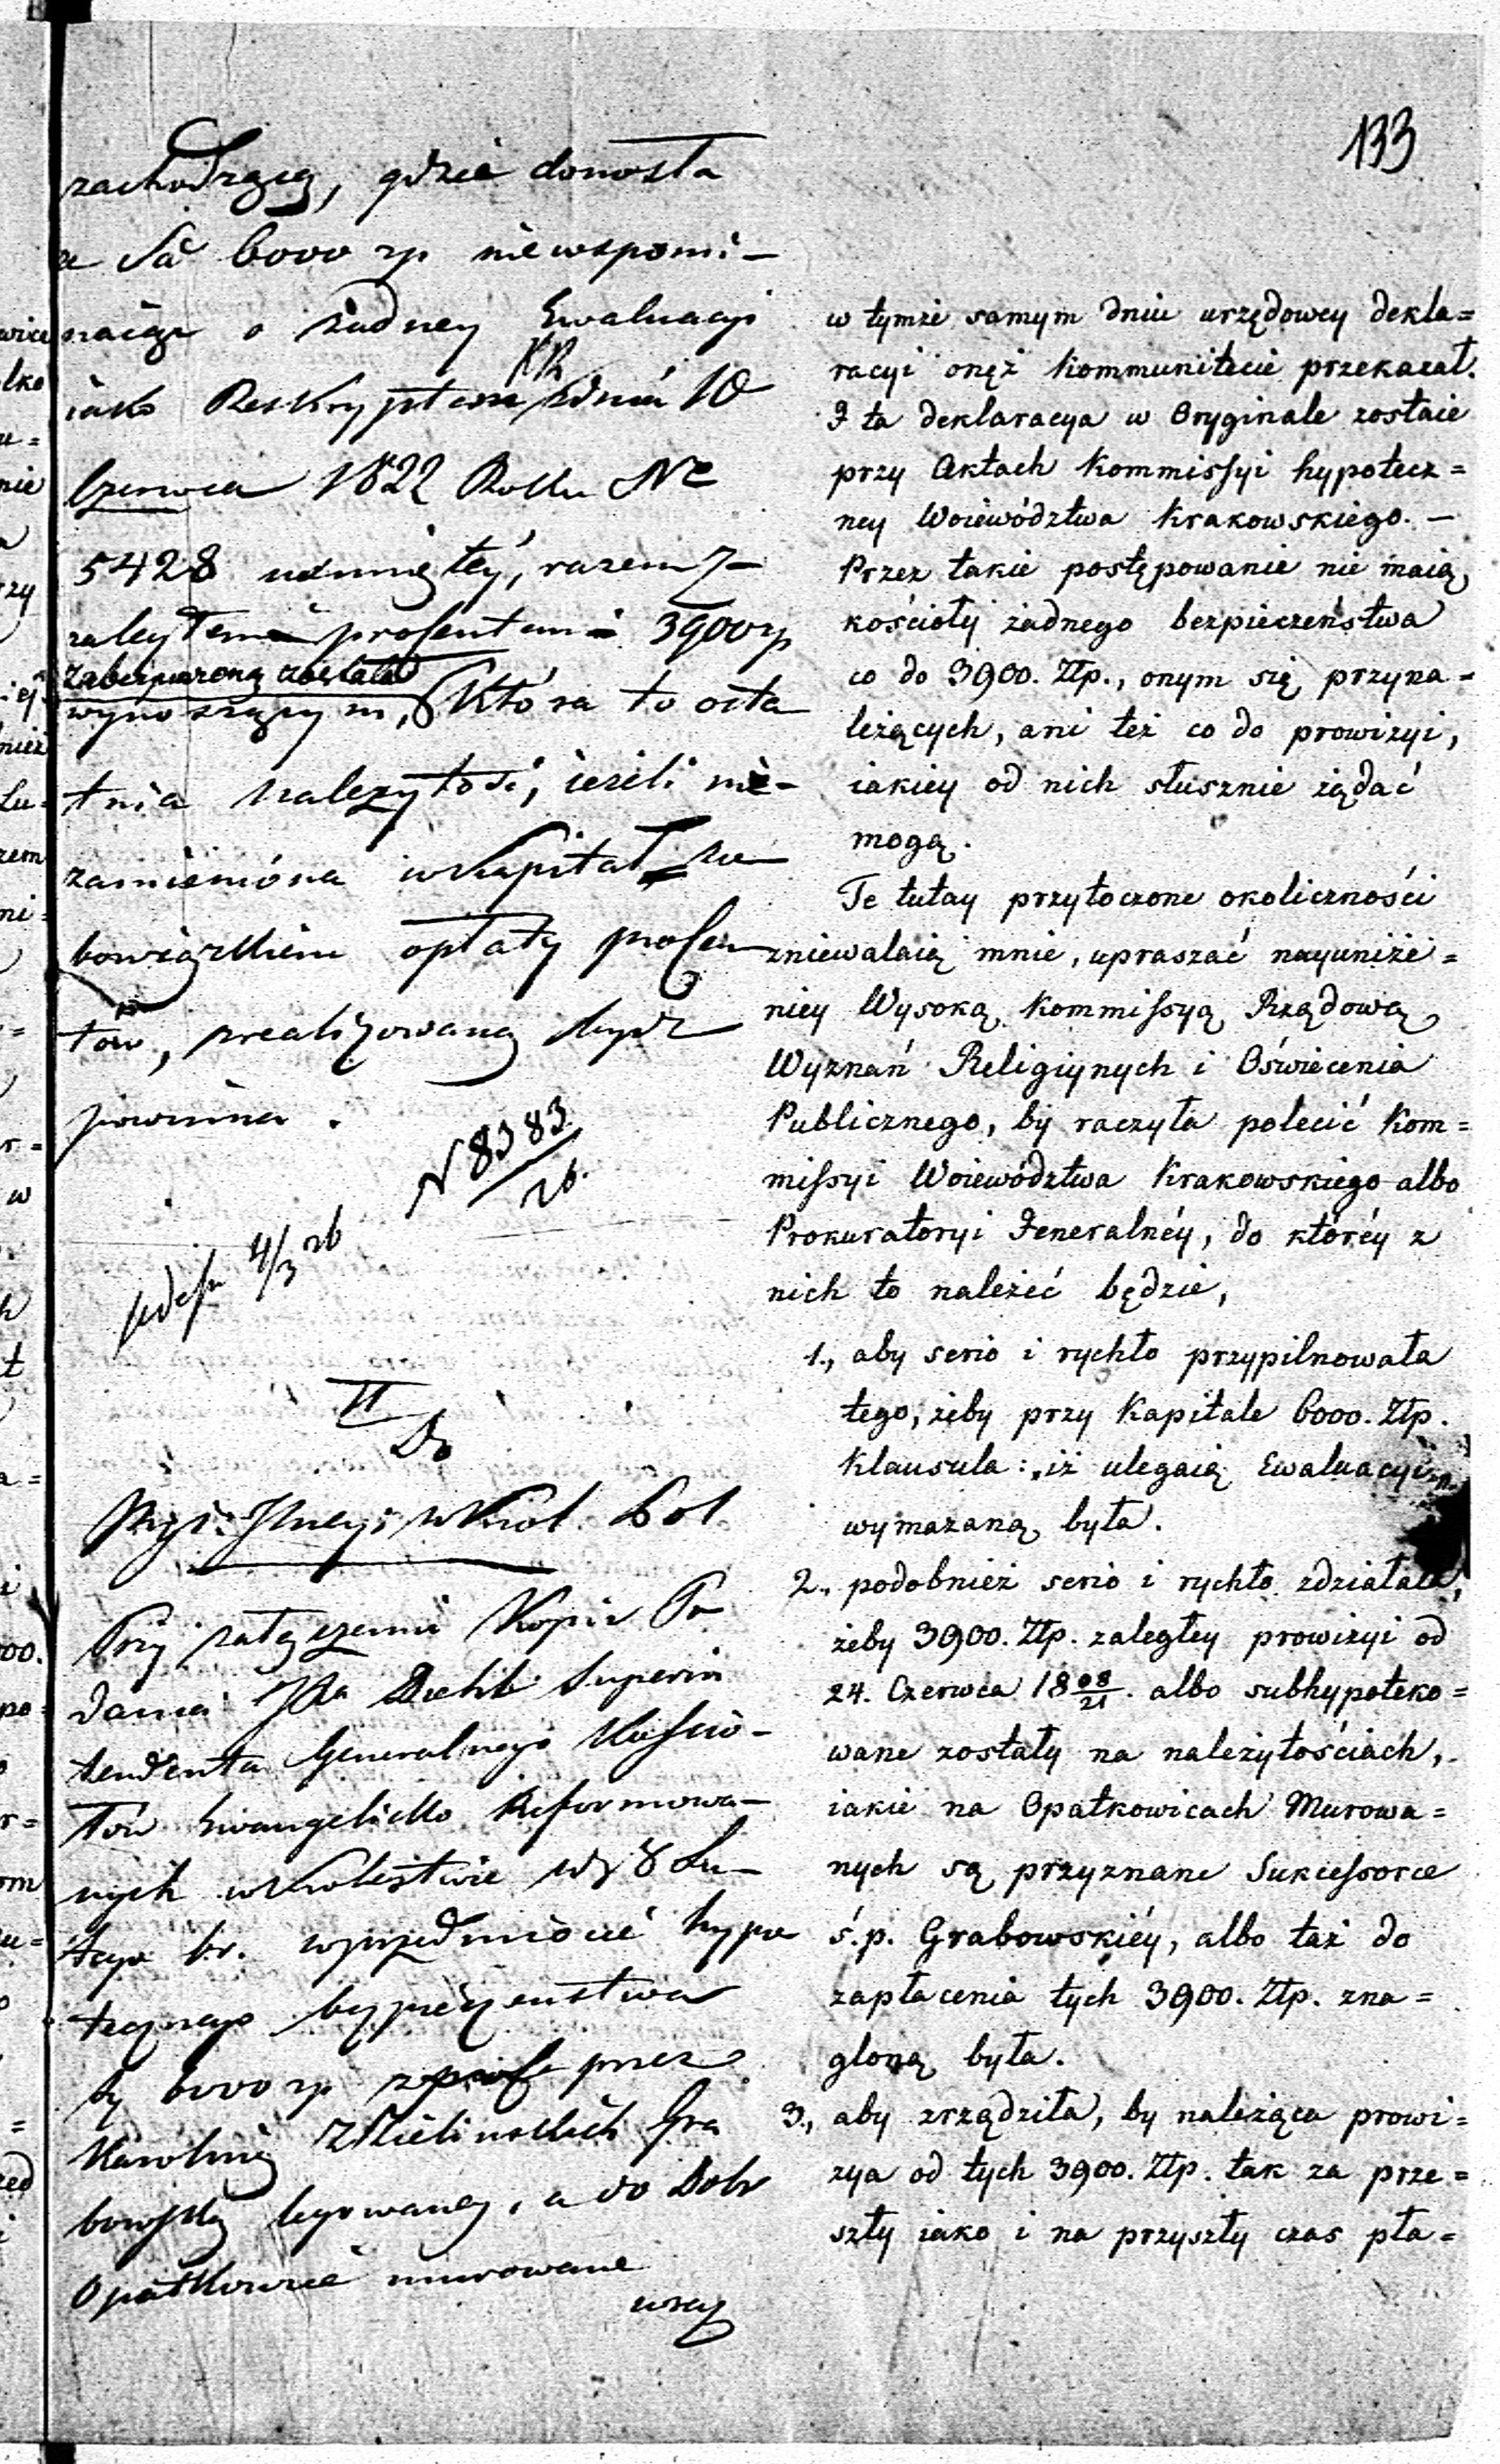 133
zachodzącą, gdzie
6000 zp niewspomi-
naiąc o żadney Ewaluacyi
iako Reskryptem KR z dnia 10
Czerwca 1822 Roku Nro
5428 razem z
zaległemi procentami 3900 zp
zabezpieczoną została
wynoszącym, Która to osta
tnia należytość, ieżeli nie-
zamienióna w Kapitał
bowiązkiem opłaty procen
tów, zrealizowaną bydź
powinna.
N 8383
26.
4/3 26
II
Do
w Król. Pol.
Przy załączeniu Kopii Po
dania JXa Diehl Superin
tendenta Generalnego Kościo-
łów Ewangelicko Reformowa-
nych w Królestwie z 8 Lu-
tego br. w przedmiocie hypo
tecznego bezpieczeństwa
6000 zp przez
Karolinę z Zielinskich Gra
bowską legowaney, a do Dobr
Opatkowice murowane
w tymże samym dniu urzędowey dekla=
racyi onęż Kommunitecie przekazał.
I ta deklaracya w Oryginale zostaie
przy Aktach Kommissyi hypotecz=
ney Woiewództwa Krakowskiego. —
Przez takie postępowanie nie maią
kościoły żadnego bezpieczeństwa
co do 3900. Złp., onym się przyna=
leżących, ani też co do prowizyi,
iakiey od nich słusznie żądać
mogą.
Te tutay przytoczone okoliczności
zniewalaią mnie, upraszać nayuniże=
niey Wysoką Kommissyą Rządową
Wyznań Religiynych i Oświecenia
Publicznego, by raczyła polecić Kom=
missyi Woiewództwa Krakowskiego albo
Prokuratoryi Jeneralnéy, do któréy z
nich to należeć będzie,
1., aby serio i rychło przypilnowała
tego, żeby przy Kapitale 6000. Złp.
Klausula: „iż ulegaią Ewaluacyi"
wymazaną była.
2., podobnież serio i rychło zdziałała,
żeby 3900. Złp. zaległey prowizyi od
24. Czerwca 18 08/21. albo subhypoteko=
wane zostały na należytościach,
iakie na Opatkowicach Murowa=
nych są przyznane Sukcessorce
ś.p. Grabowskiéy, albo taż do
zapłacenia tych 3900. Złp. zna=
gloną była.
3., aby zrządziła, by należąca prowi=
zya od tych 3900. Złp. tak za prze=
szły iako i na przyszły czas pła=